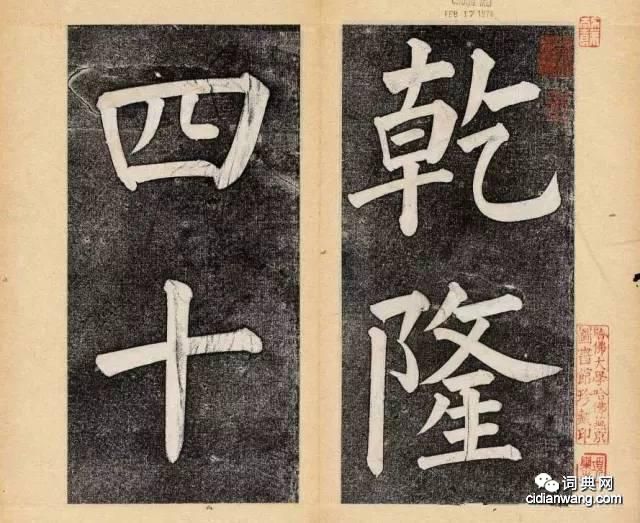 乾隆
四十
FEB 17 1976
哈佛大學哈佛燕京
圖書館珍藏印
词典网
cidianwang.com